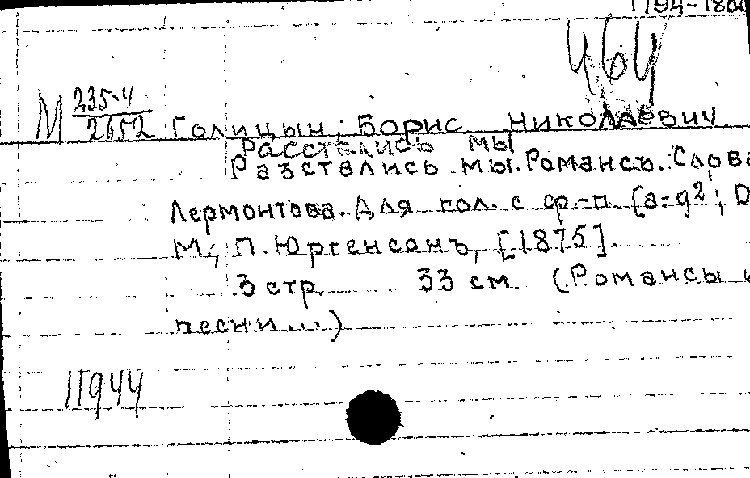 464
М 235-4
2652 Голицын, Борис Николаевич
Расстались мы
Разстались мы. Романсъ. Слова
Лермонтова. Для гол. с ф.-п. [a-g²; D
М., П. Юргенсонъ, [1875].
3 стр. 33 см. (Романсы и
песни...)
11944